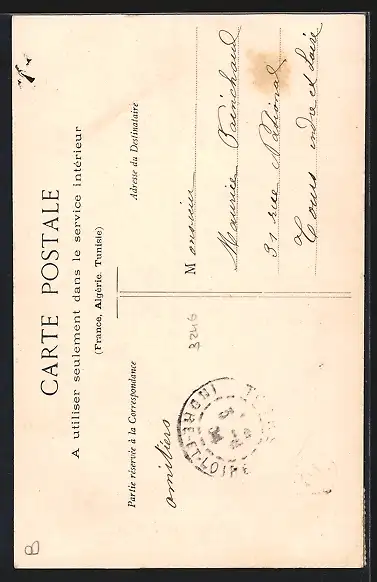 CARTE POSTALE
A utiliser seulement dans le service intérieur
(France, Algérie, Tunisie)
Partie réservée à la Correspondance
Adresse du Destinataire
amitiers
3246
Monsieur
Maurice
31 rue National
Tours indre et loire
INDRE-ET-
B